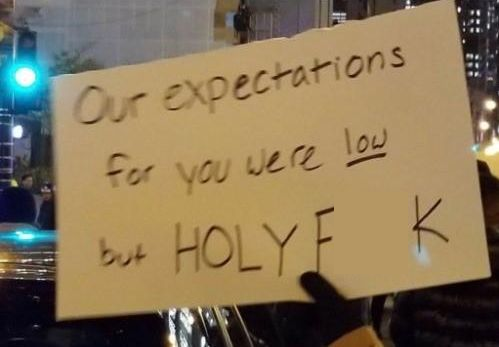 Our expectations
for you were low
but HOLY F K